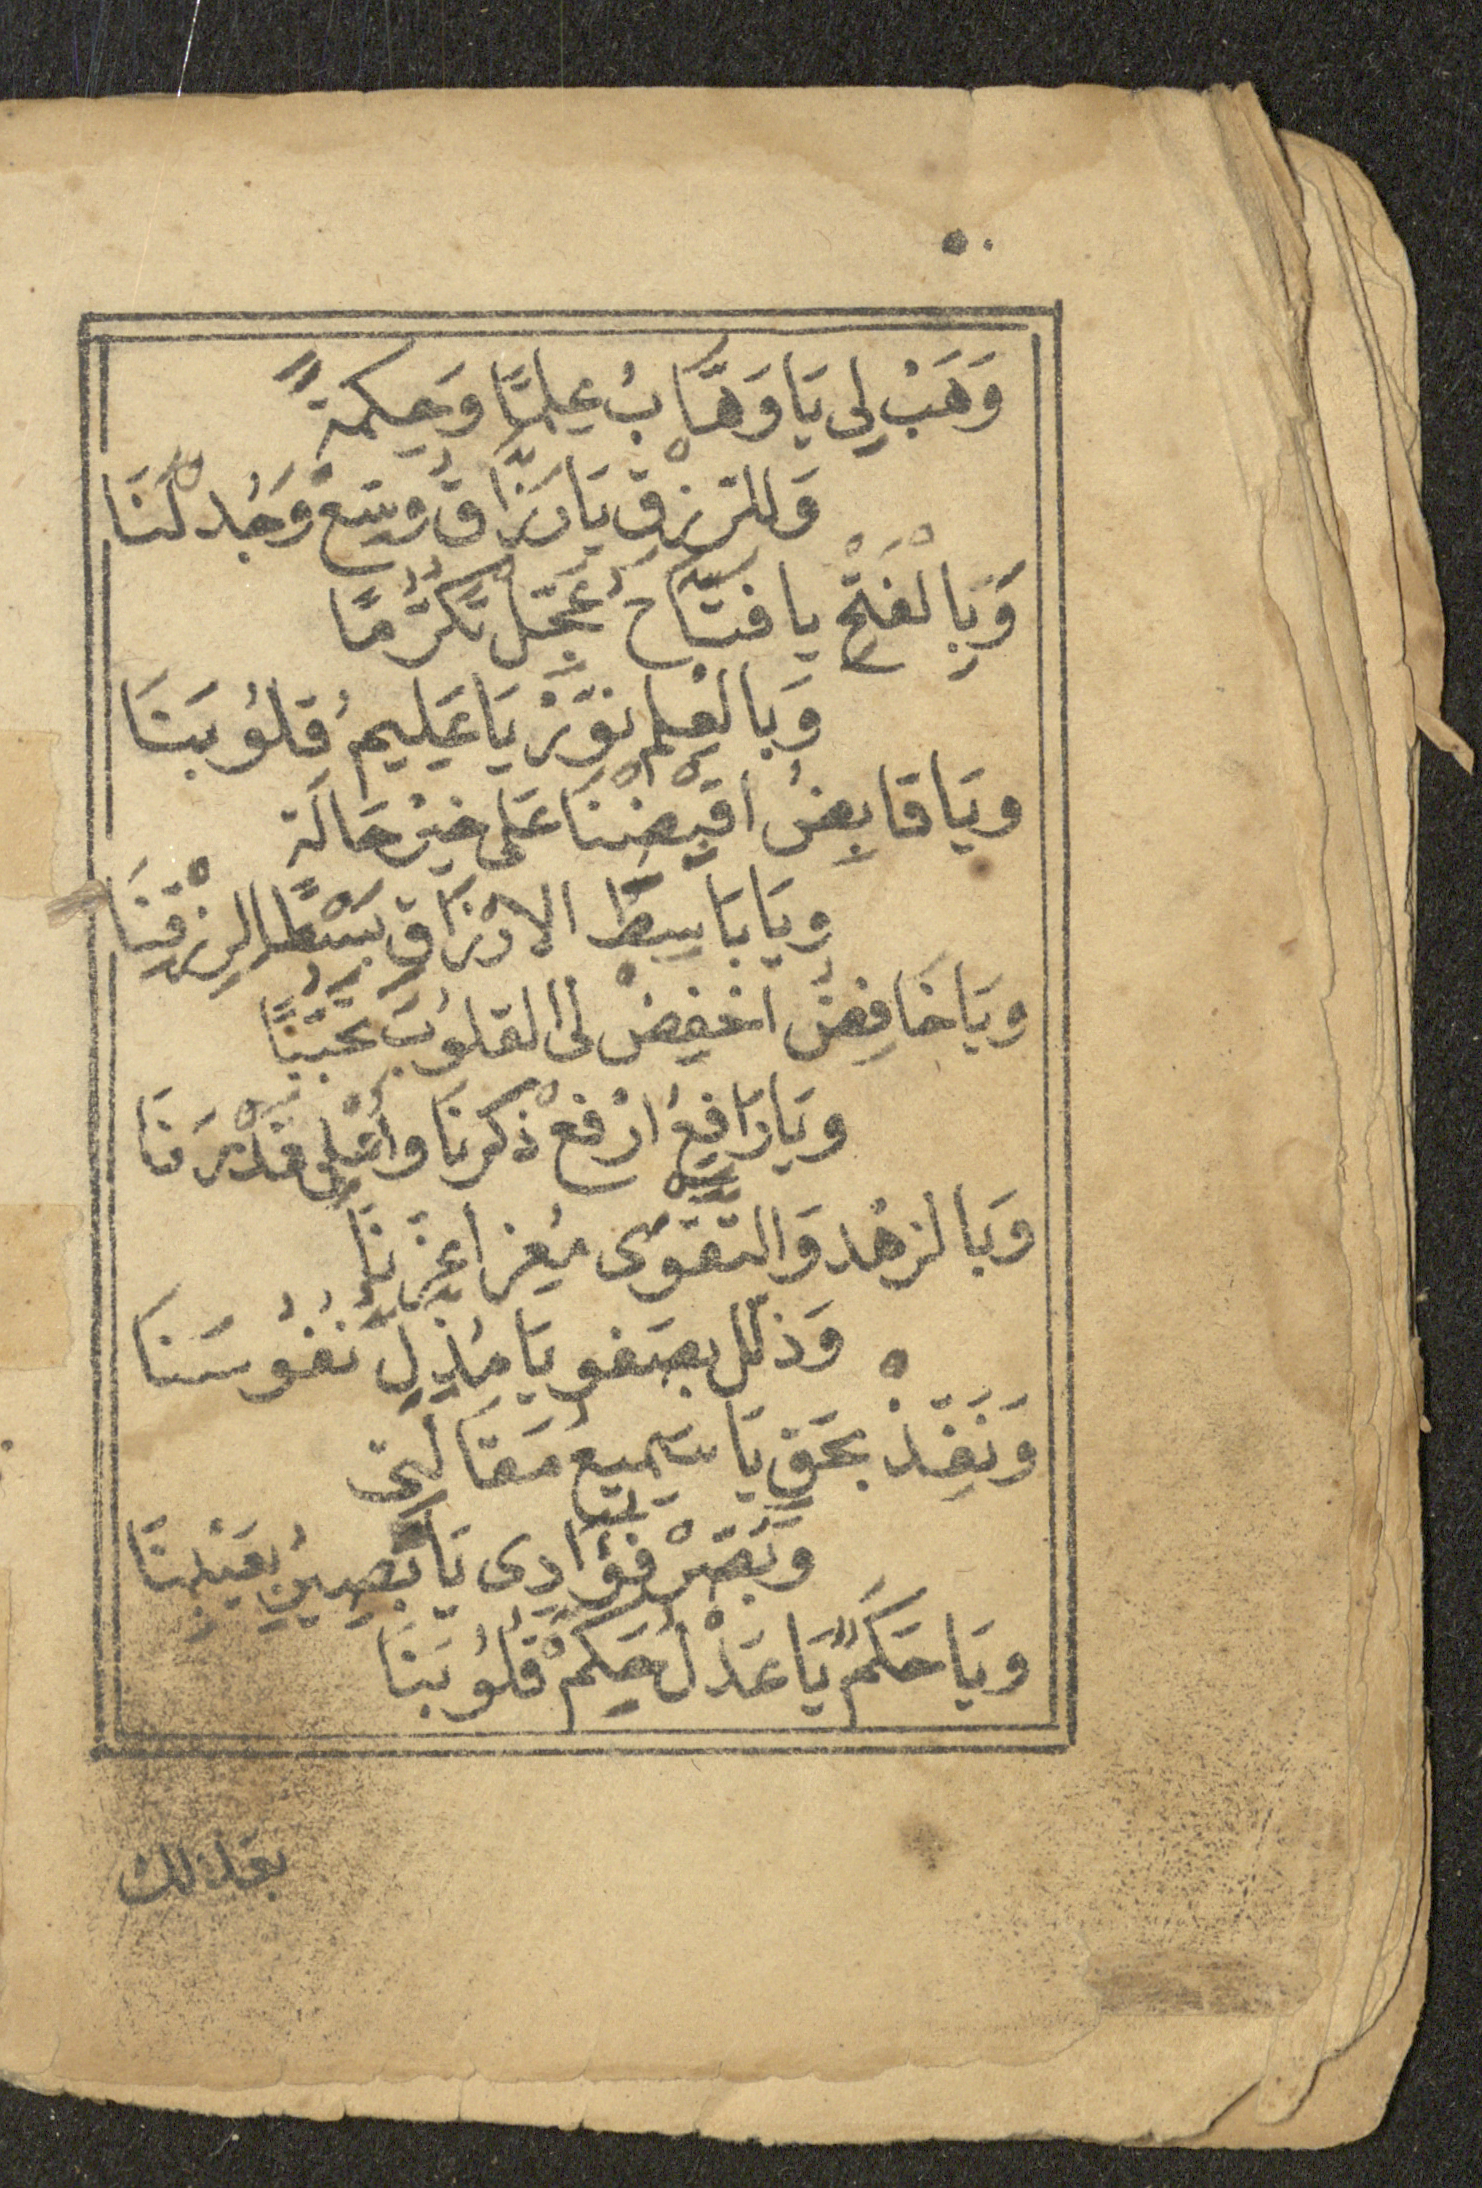 ٥٠
وَهَبْ لِي يَا وَهَّابُ عِلمًا وَحِكمةً
وَللرِّزْقِ يَا رَزَّاقُ وَسِّعْ وَجُدْ لَنَا
وَبِالْفَتْحِ يا فتَّاحُ عَجِّلْ تَكَرُّمًا
وَبالعِلمِ نَوِّرْ يَا عَلِيمُ قلُوبَنَا
ويَا قابِضُ اقْبِضْنَا عَلى خَيْرِ حَالَةٍ
ويَا بَاسِطَ الارْزَاقِ بَسْطًا لِرِزْقِنَا
ويَا خَافِضُ اخْفِضْ لى القلُوبَ تَحَبُّبًا
ويَا رَافِعُ ارْفعْ ذكرنَا واعْلِى قَدْرَنَا
وَبالزهْد وَالتَّقْوَى مُعِز اعِزنَا
وَذلل بصَفو يَا مُذِل نُفُوسَنا
وَنَفِّذْ بِحَقٍ يَا سَمِيعُ مَقَالَتِى
وَبَصِّرْ فؤَادِى يَا بَصِيرُ بِعَيْبِنَا
ويَا حَكَمٌ يَا عَدْلُ حَكِّمْ قُلُوبَنَا
بعدلك